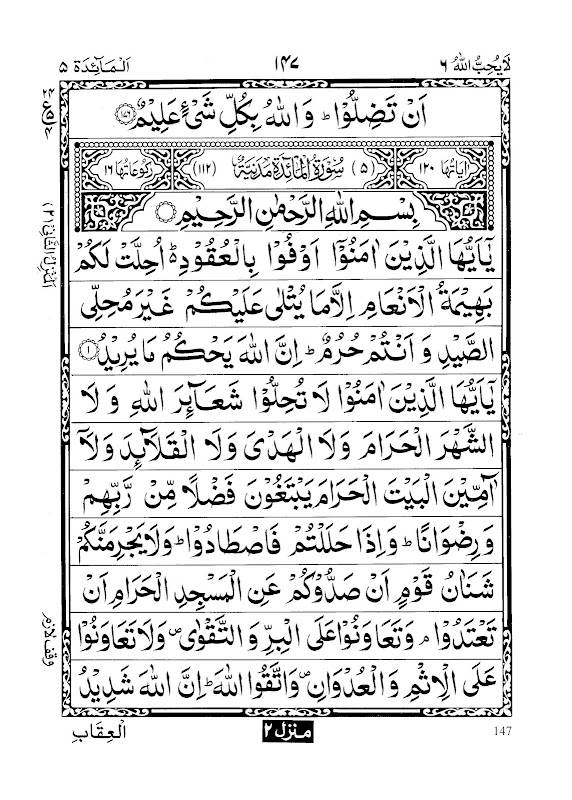 لَا یُحِبُّ اللّٰهُ ٦ ١٤٧ اَلْمَآئِدَة ٥
اَنْ تَضِلُّوْا ؕ وَ اللّٰهُ بِكُلِّ شَیْءٍ عَلِیْمٌ ۝١٧٦
اٰیاتُهَا ١٢٠ (٥) سُوْرَةُ الْمَآئِدَةِ مَدَنِیَّةٌ (١١٢) رُكُوْعَاتُهَا ١٦
بِسْمِ اللّٰهِ الرَّحْمٰنِ الرَّحِیْمِ ۝
یٰۤاَیُّهَا الَّذِیْنَ اٰمَنُوْۤا اَوْفُوْا بِالْعُقُوْدِ ؕ۬ اُحِلَّتْ لَكُمْ
بَهِیْمَةُ الْاَنْعَامِ اِلَّا مَا یُتْلٰى عَلَیْكُمْ غَیْرَ مُحِلِّی
الصَّیْدِ وَ اَنْتُمْ حُرُمٌ ؕ اِنَّ اللّٰهَ یَحْكُمُ مَا یُرِیْدُ ۝١
یٰۤاَیُّهَا الَّذِیْنَ اٰمَنُوْا لَا تُحِلُّوْا شَعَآئِرَ اللّٰهِ وَ لَا
الشَّهْرَ الْحَرَامَ وَلَا الْهَدْیَ وَلَا الْقَلَآئِدَ وَلَاۤ
آٰمِّیْنَ الْبَیْتَ الْحَرَامَ یَبْتَغُوْنَ فَضْلًا مِّنْ رَّبِّهِمْ
وَ رِضْوَانًا ؕ وَاِذَا حَلَلْتُمْ فَاصْطَادُوْا ؕ وَلَا یَجْرِمَنَّكُمْ
شَنَاٰنُ قَوْمٍ اَنْ صَدُّوْكُمْ عَنِ الْمَسْجِدِ الْحَرَامِ اَنْ
تَعْتَدُوْا ۘ وَتَعَاوَنُوْا عَلَى الْبِرِّ وَ التَّقْوٰى ۪ وَلَا تَعَاوَنُوْا
عَلَى الْاِثْمِ وَ الْعُدْوَانِ ۪ وَاتَّقُوا اللّٰهَ ؕ اِنَّ اللّٰهَ شَدِیْدُ
وقف لازم
147 منزل ٢ الْعِقَابِ